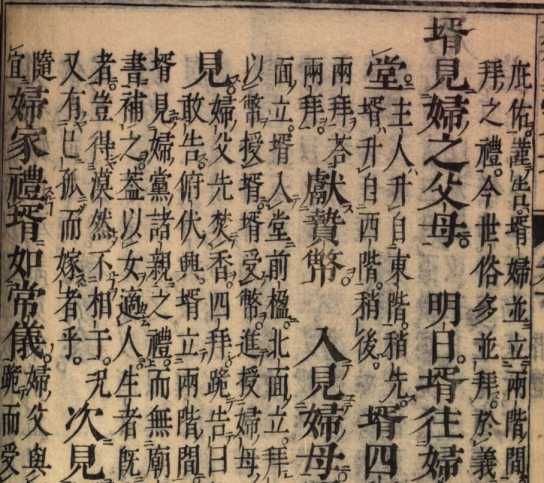 庇佑。謹告。壻婦並立兩階間
拜之禮。今世俗多並拜。於義
壻見婦之父母。 明日。壻往婦
堂。主人升自東階。稍先。
壻升自西階。稍後。
壻四
兩拜。答
兩拜。
獻贄幣。 入見婦母。
面立。壻入堂前楹。北面立。拜
以幣授壻。壻受幣。進授婦母
見。婦父先焚香。四拜。跪告曰
敢告。俯伏。興。壻立兩階間
壻見婦黨諸親之禮。而無廟
書補之。蓋以女適人。生者既
者。豈得漠然不相于。尤
又有已孤而嫁者乎。
次見
隨
宜
婦家禮壻如常儀。
婦父與
跪而受